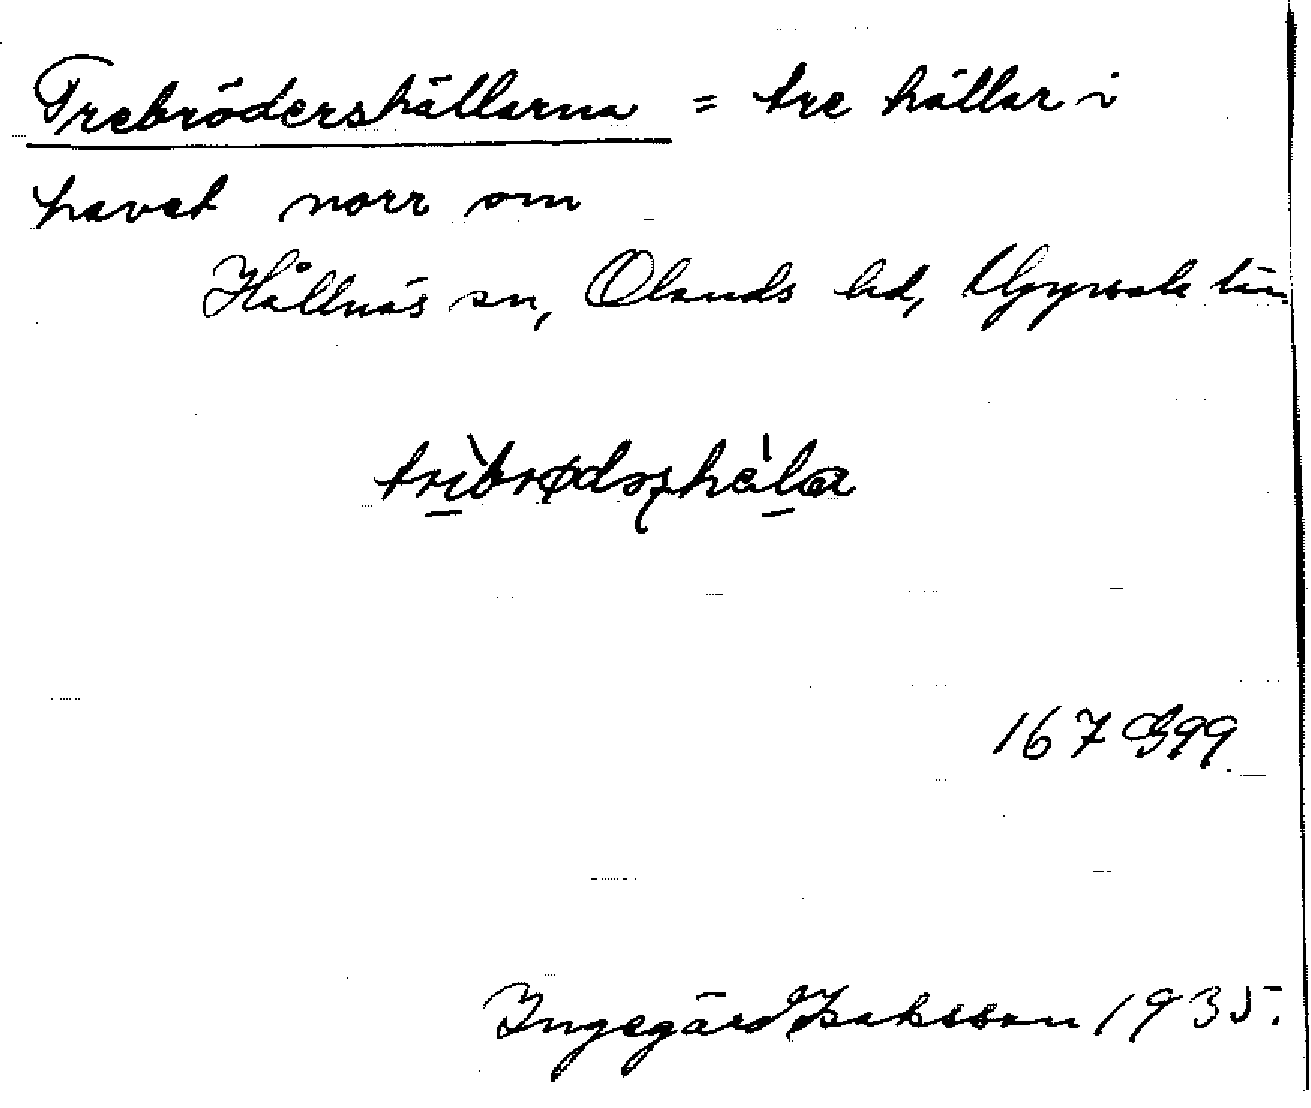 Trebrödershällarna = tre hällar i
havet norr om
Hållnäs sn, Olands hd, Uppsala län
167 G99.
Ingegärd Isaksson 1935.